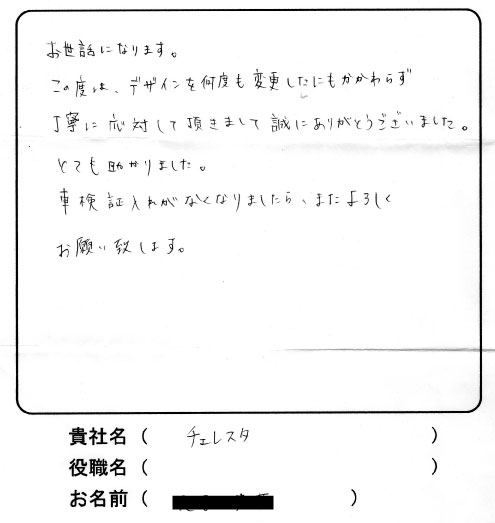 お世話になります。
この度は、デザインを何度も変更したにもかかわらず
丁寧に応対して頂きまして誠にありがとうございました。
とても助かりました。
車検証入れがなくなりましたら、またよろしく
お願い致します。
貴社名（ チェレスタ ）
役職名（ ）
お名前（ ）